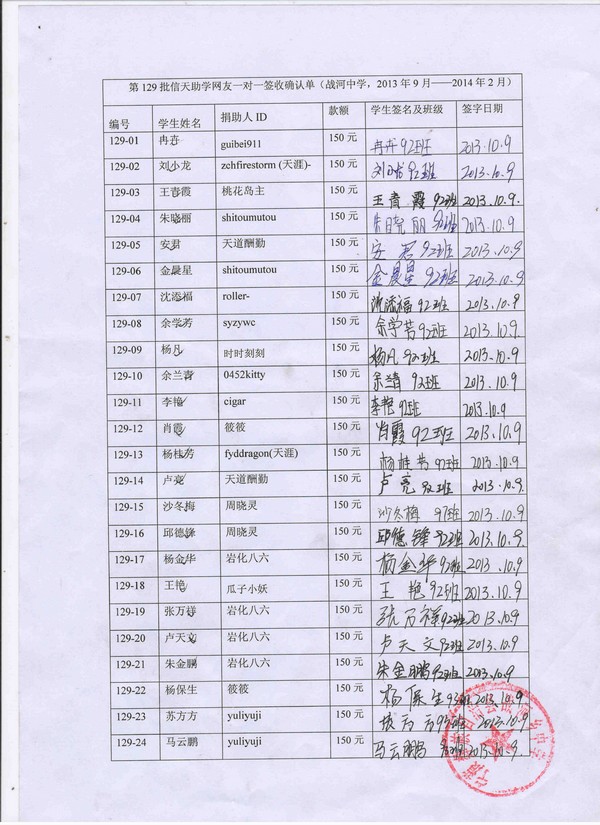 第 129 批信天助学网友一对一签收确认单（战河中学，2013 年 9 月——2014 年 2 月）
编号 学生姓名 捐助人 ID 款额 学生签名及班级 签字日期
129-01 冉卉 guibei911 150 元 冉卉 92班 2013.10.9
129-02 刘小龙 zchfirestorm (天涯)- 150 元 刘小龙 92班 2013.10.9
129-03 王青霞 桃花岛主 150 元 王青霞 92班 2013.10.9.
129-04 朱晓丽 shitoumutou 150 元 朱晓丽 92班 2013.10.9
129-05 安君 天道酬勤 150 元 安君 92班 2013.10.9
129-06 金晨星 shitoumutou 150 元 金晨星 92班 2013.10.9
129-07 沈添福 roller- 150 元 沈添福 92班 2013.10.9
129-08 余学芳 syzywc 150 元 余学芳 92班 2013.10.9
129-09 杨凡 时时刻刻 150 元 杨凡 92班 2013.10.9
129-10 余兰青 0452kitty 150 元 92班 2013.10.9
129-11 李艳 cigar 150 元 李艳 92班 2013.10.9
129-12 肖霞 筱筱 150 元 肖霞 92班 2013.10.9
129-13 杨桂芳 fyddragon(天涯) 150 元 杨桂芳 92班 2013.10.9
129-14 卢亮 天道酬勤 150 元 卢亮 92班 2013.10.9.
129-15 沙冬梅 周晓灵 150 元 沙冬梅 2013.10.9
129-16 邱德锋 周晓灵 150 元 邱德锋 92班 2013.10.9
129-17 杨金华 岩化八六 150 元 杨金华 92班 2013.10.9
129-18 王艳 瓜子小妖 150 元 王艳 92班 2013.10.9
129-19 张万祥 岩化八六 150 元 张万祥 92班 2013.10.9
129-20 卢天文 岩化八六 150 元 卢天文 92班 2013.10.9
129-21 朱金鹏 岩化八六 150 元 朱金鹏 92班 2013.10.9
129-22 杨保生 筱筱 150 元 杨保生 93班 2013.10.9
129-23 苏方方 yuliyuji 150 元 93班 2013.10.9
129-24 马云鹏 yuliyuji 150 元 马云鹏 2013.10.9.